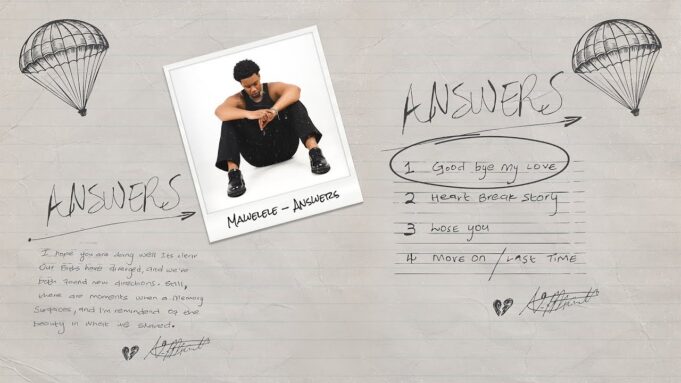 ANSWERS
I hope you are doing well Its clear
Our Paths have diverged, and we've
both found new directions. Still,
there are moments when a Memory
Surfaces, and I'm reminded of the
beauty in what we shared.
MAWELELE – ANSWERS
ANSWERS
1 Good bye my LOVE
2 Heart Break Story
3 Lose you
4 MOVE ON / LAST TIME